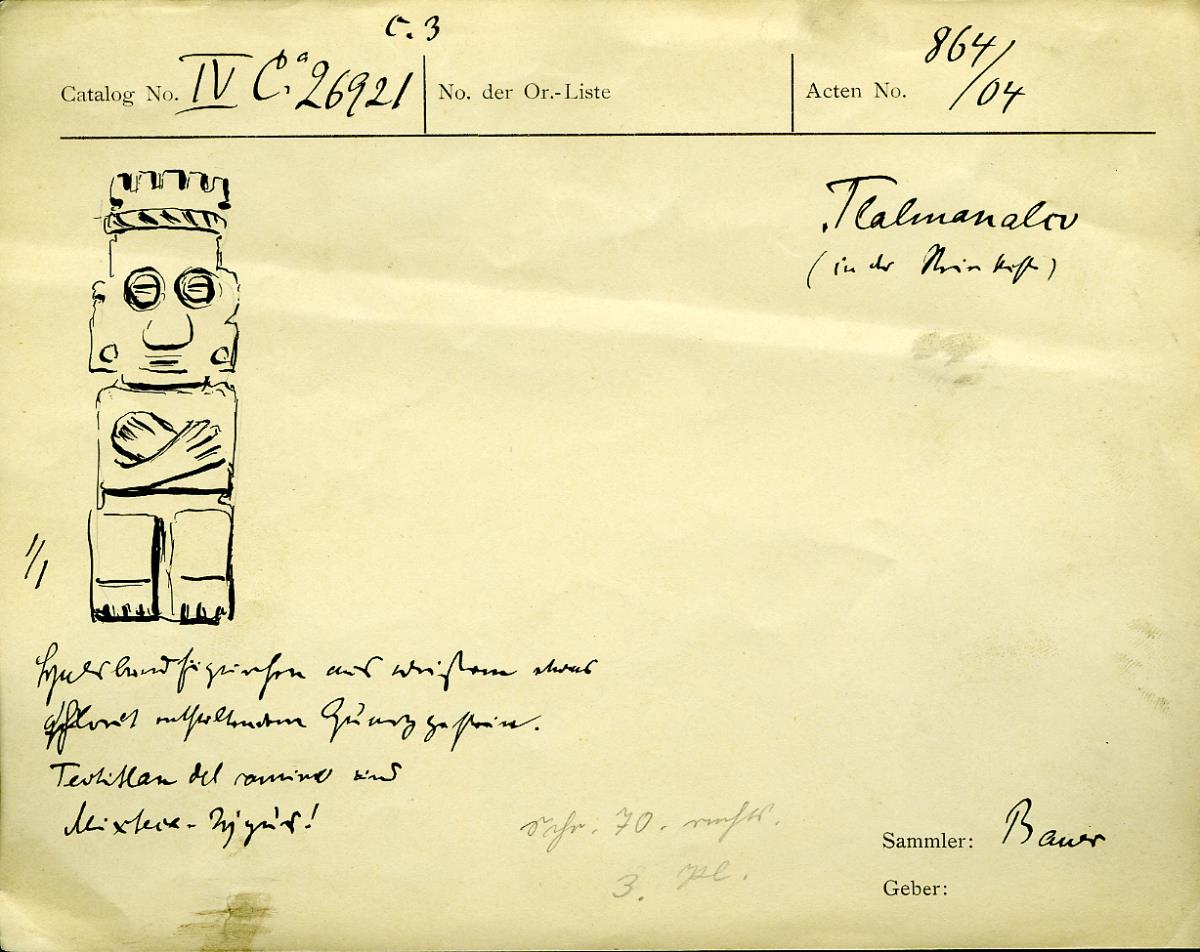 c. 3
Catalog No. IV Ca 26921
No. der Or.-Liste
Acten No. 864/04
Tlalmanalco
(in der Steinkiste)
1/1
Halsbandfigürchen aus weißem etwas
Chlorit enthaltendem Quarzgestein.
Teotitlan del camino und
Mixteca-Figur!
Schr. 70. rechts.
3. Pl.
Sammler: Bauer
Geber: